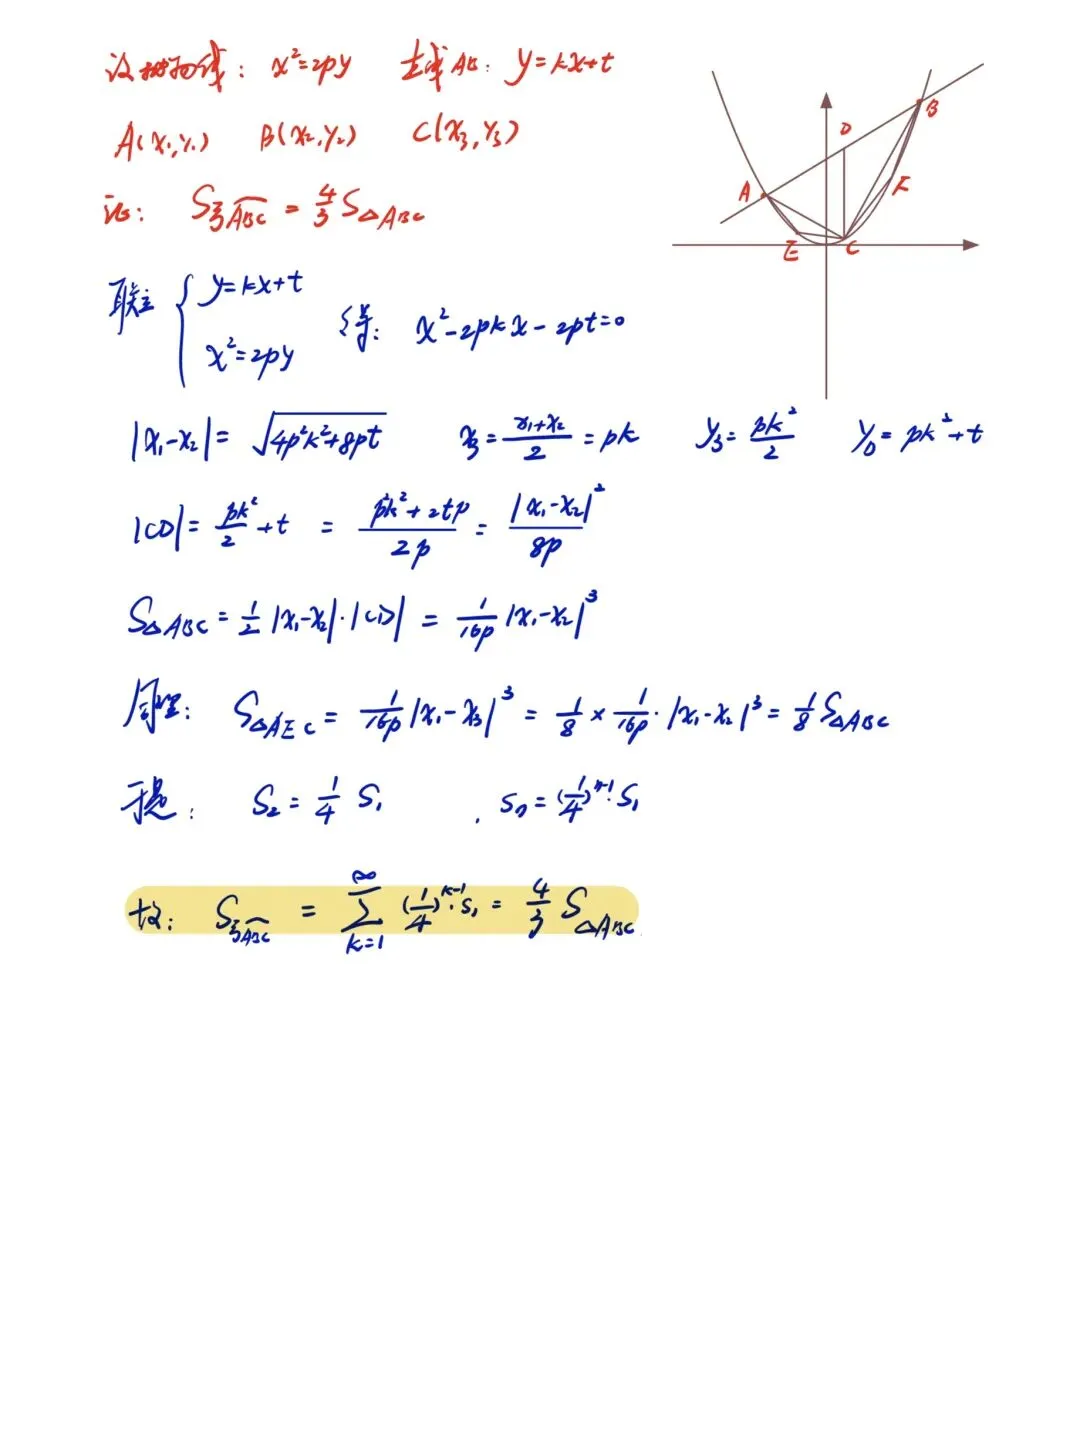 设抛物线: x²=2py 直线AB: y=kx+t
A(x₁,y₁) B(x₂,y₂) C(x₃,y₃)
证: S弓ABC = 4/3 S△ABC
联立 { y=kx+t
x²=2py 得: x²-2pkx-2pt=0
|x₁-x₂| = √(4p²k²+8pt) x₃ = (x₁+x₂)/2 = pk y₃ = pk²/2 y_D = pk²+t
|CD| = pk²/2 + t = (p²k²+2tp)/2p = |x₁-x₂|²/8p
S△ABC = 1/2 |x₁-x₂|·|CD| = 1/16p |x₁-x₂|³
同理: S△AEC = 1/16p |x₁-x₃|³ = 1/8 × 1/16p · |x₁-x₂|³ = 1/8 S△ABC
于是: S₂ = 1/4 S₁ , Sn = (1/4)ⁿ⁻¹·S₁
故: S弓ABC = ∑_{k=1}^{∞} (1/4)^{k-1}·S₁ = 4/3 S△ABC
B
D
A
F
E
C